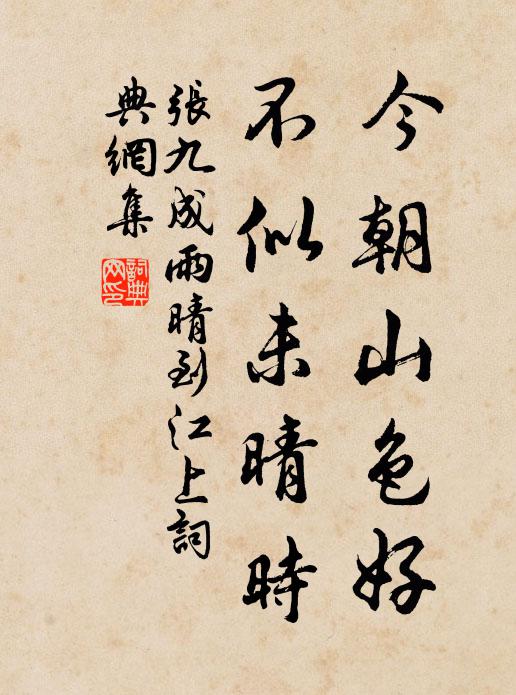 今朝山色好
不似未晴時
張九成雨晴到江上詞
典網集
詞典
网印